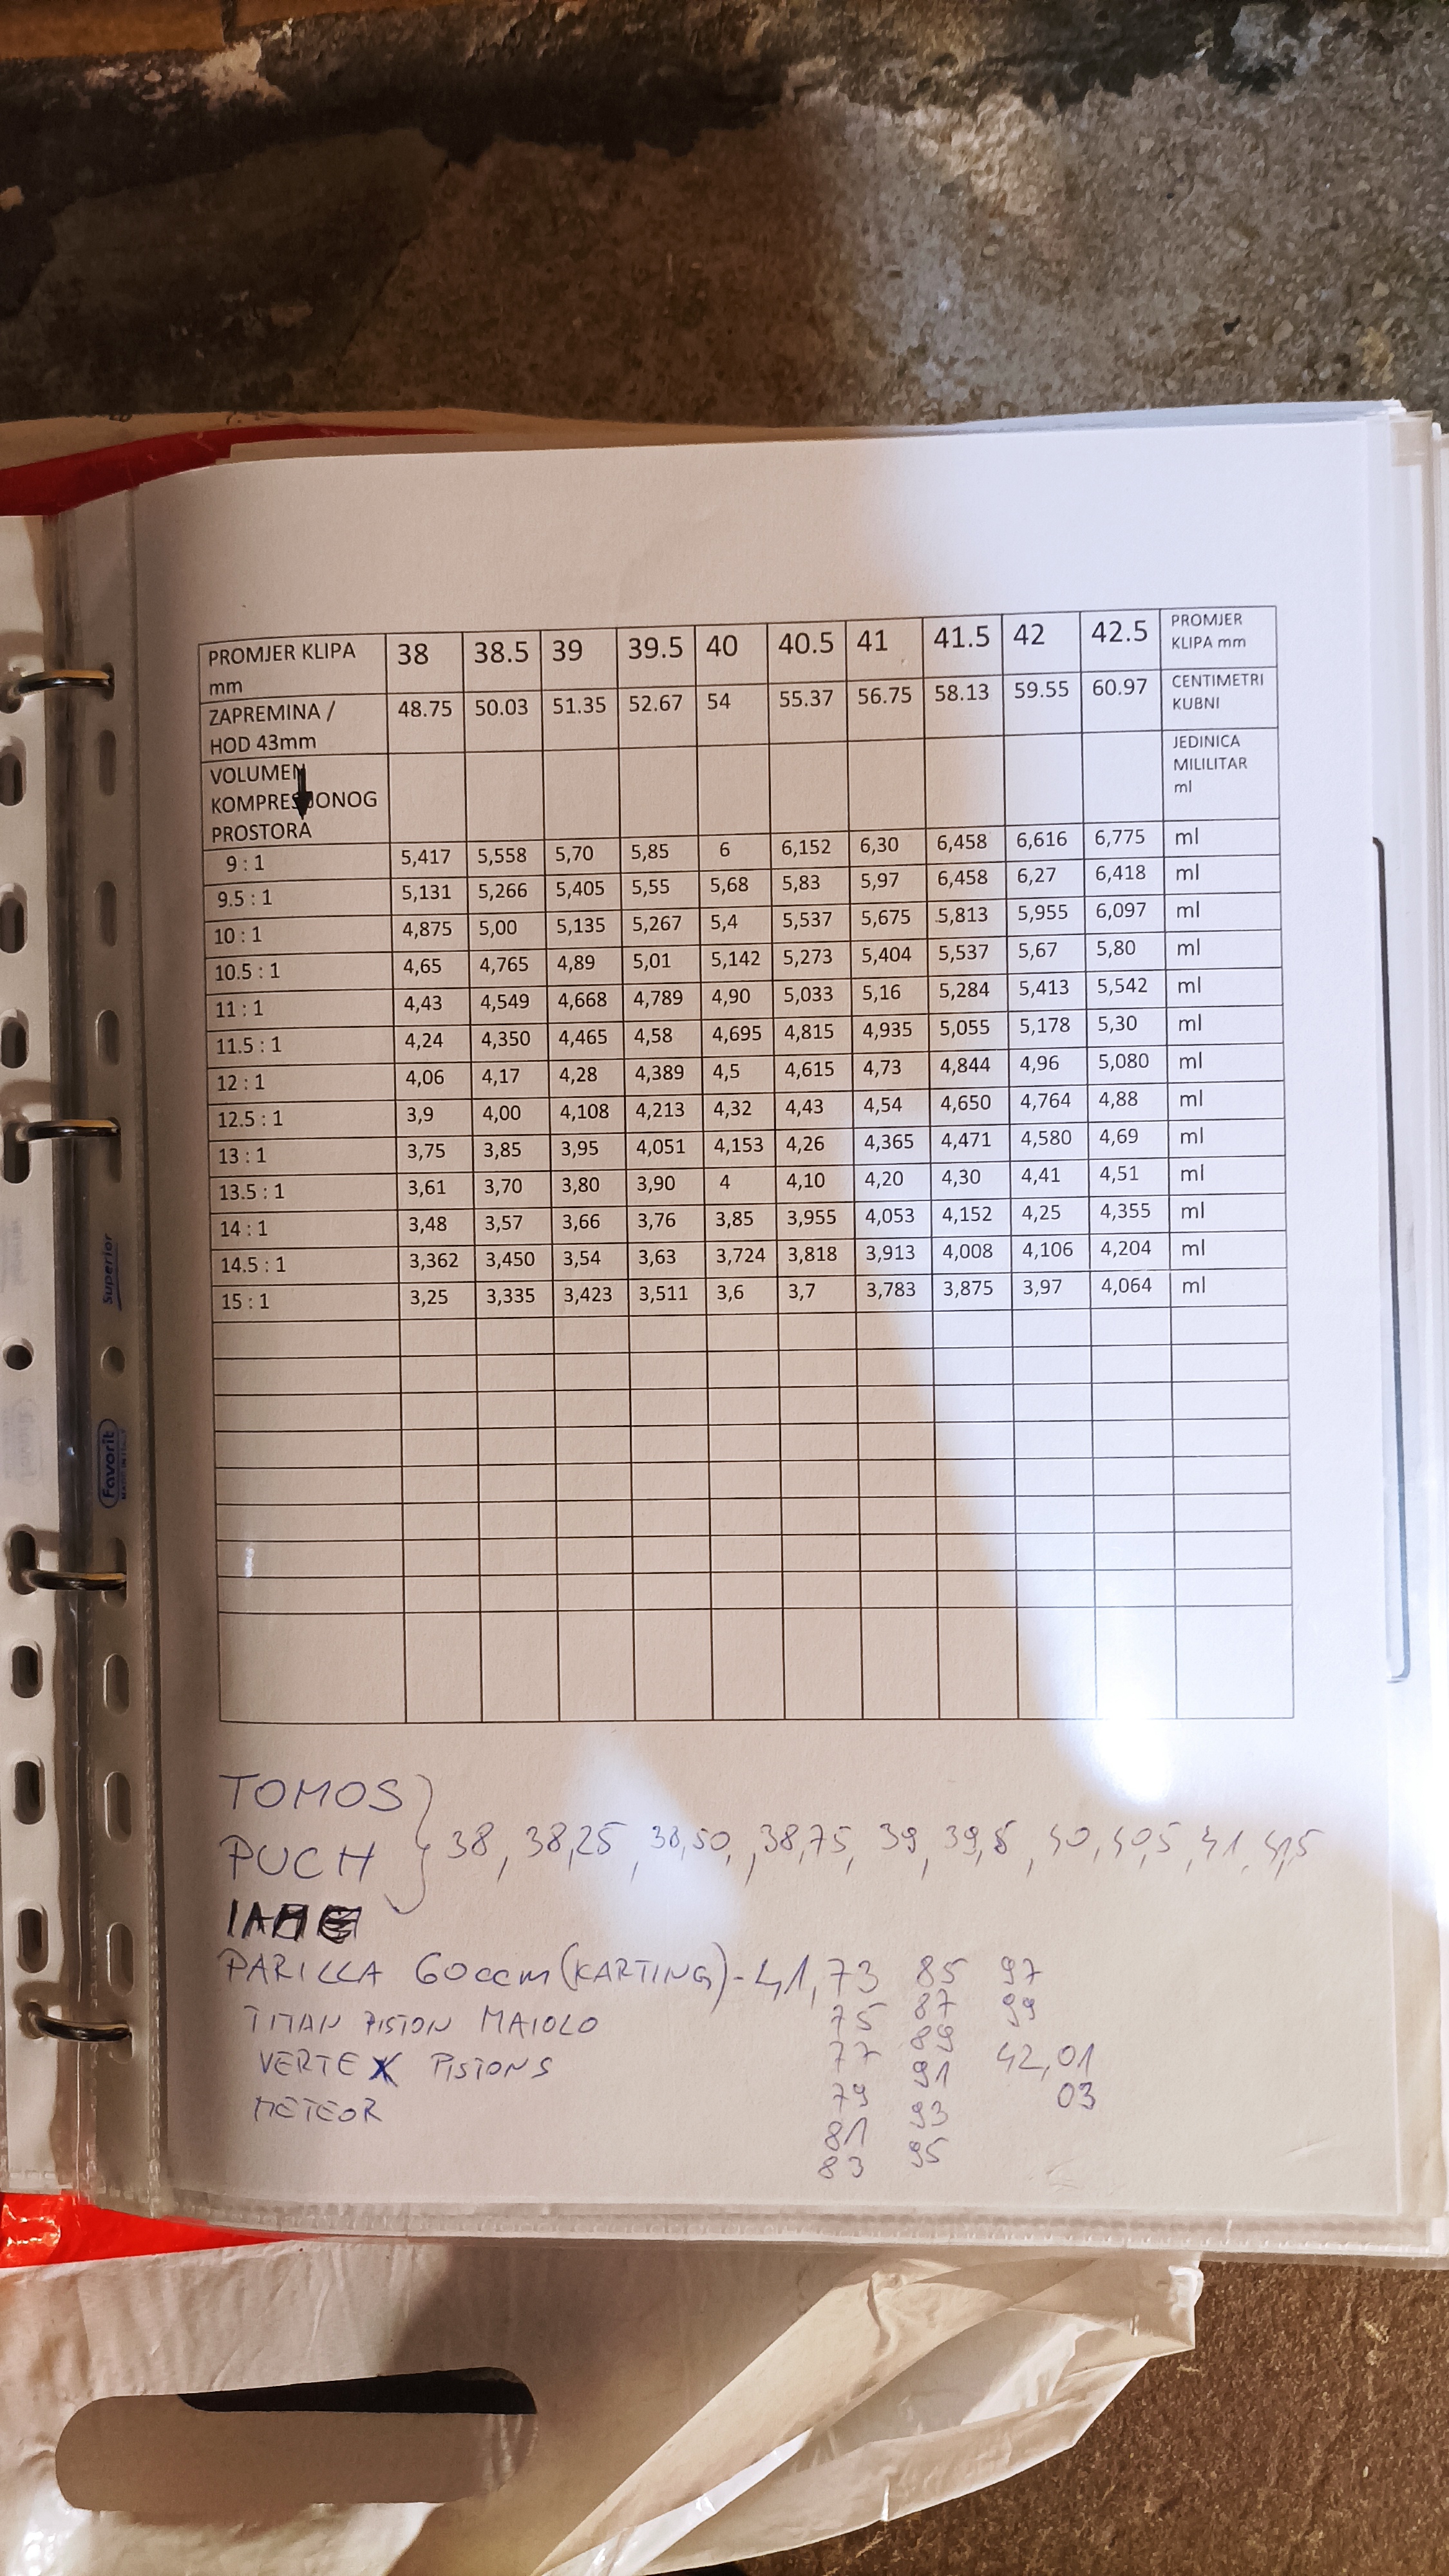 PROMJER KLIPA mm 38 38.5 39 39.5 40 40.5 41 41.5 42 42.5 PROMJER KLIPA mm
ZAPREMINA / HOD 43mm 48.75 50.03 51.35 52.67 54 55.37 56.75 58.13 59.55 60.97 CENTIMETRI KUBNI
VOLUMEN KOMPRESJONOG PROSTORA JEDINICA MILILITAR ml
9 : 1 5,417 5,558 5,70 5,85 6 6,152 6,30 6,458 6,616 6,775 ml
9.5 : 1 5,131 5,266 5,405 5,55 5,68 5,83 5,97 6,458 6,27 6,418 ml
10 : 1 4,875 5,00 5,135 5,267 5,4 5,537 5,675 5,813 5,955 6,097 ml
10.5 : 1 4,65 4,765 4,89 5,01 5,142 5,273 5,404 5,537 5,67 5,80 ml
11 : 1 4,43 4,549 4,668 4,789 4,90 5,033 5,16 5,284 5,413 5,542 ml
11.5 : 1 4,24 4,350 4,465 4,58 4,695 4,815 4,935 5,055 5,178 5,30 ml
12 : 1 4,06 4,17 4,28 4,389 4,5 4,615 4,73 4,844 4,96 5,080 ml
12.5 : 1 3,9 4,00 4,108 4,213 4,32 4,43 4,54 4,650 4,764 4,88 ml
13 : 1 3,75 3,85 3,95 4,051 4,153 4,26 4,365 4,471 4,580 4,69 ml
13.5 : 1 3,61 3,70 3,80 3,90 4 4,10 4,20 4,30 4,41 4,51 ml
14 : 1 3,48 3,57 3,66 3,76 3,85 3,955 4,053 4,152 4,25 4,355 ml
14.5 : 1 3,362 3,450 3,54 3,63 3,724 3,818 3,913 4,008 4,106 4,204 ml
15 : 1 3,25 3,335 3,423 3,511 3,6 3,7 3,783 3,875 3,97 4,064 ml
Superior
Favorit
TOMOS
PUCH 38, 38,25, 38,50, 38,75, 39, 39,5, 40, 40,5, 41, 41,5
PARILLA 60ccm (KARTING) - 41,73 85 97
TITAN PISTON MAIOLO 75 87 99
VERTEX PISTONS 77 89 42,01
METEOR 79 91 03
81 93
83 95